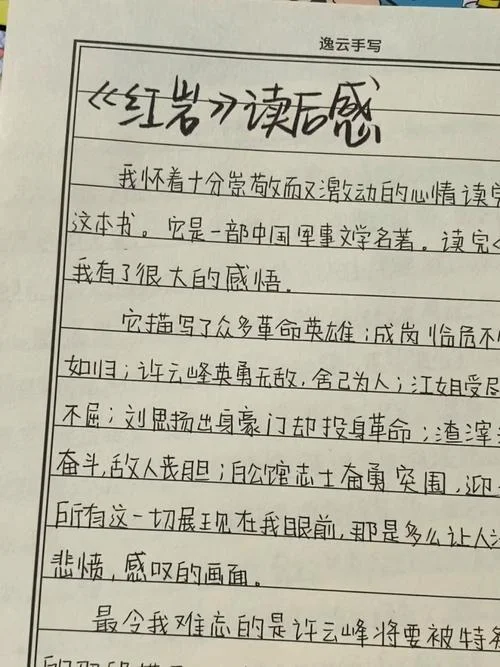 逸云手写
《红岩》读后感
我怀着十分崇敬而又激动的心情读完
这本书。它是一部中国军事文学名著。读完
我有了很大的感悟。
它描写了众多革命英雄；成岗临危不
如归；许云峰英勇无敌，舍己为人；江姐受尽
不屈；刘思扬出身豪门却投身革命；渣滓
奋斗，敌人丧胆；白公馆志士奋勇突围，迎
所有这一切展现在我眼前，那是多么让人
悲愤，感叹的画面。
最令我难忘的是许云峰将要被特务